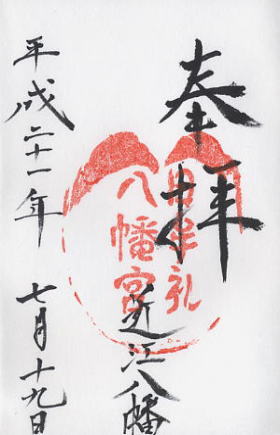 奉拝
近江八幡
日牟礼
八幡宮
平成二十一年 七月十九日